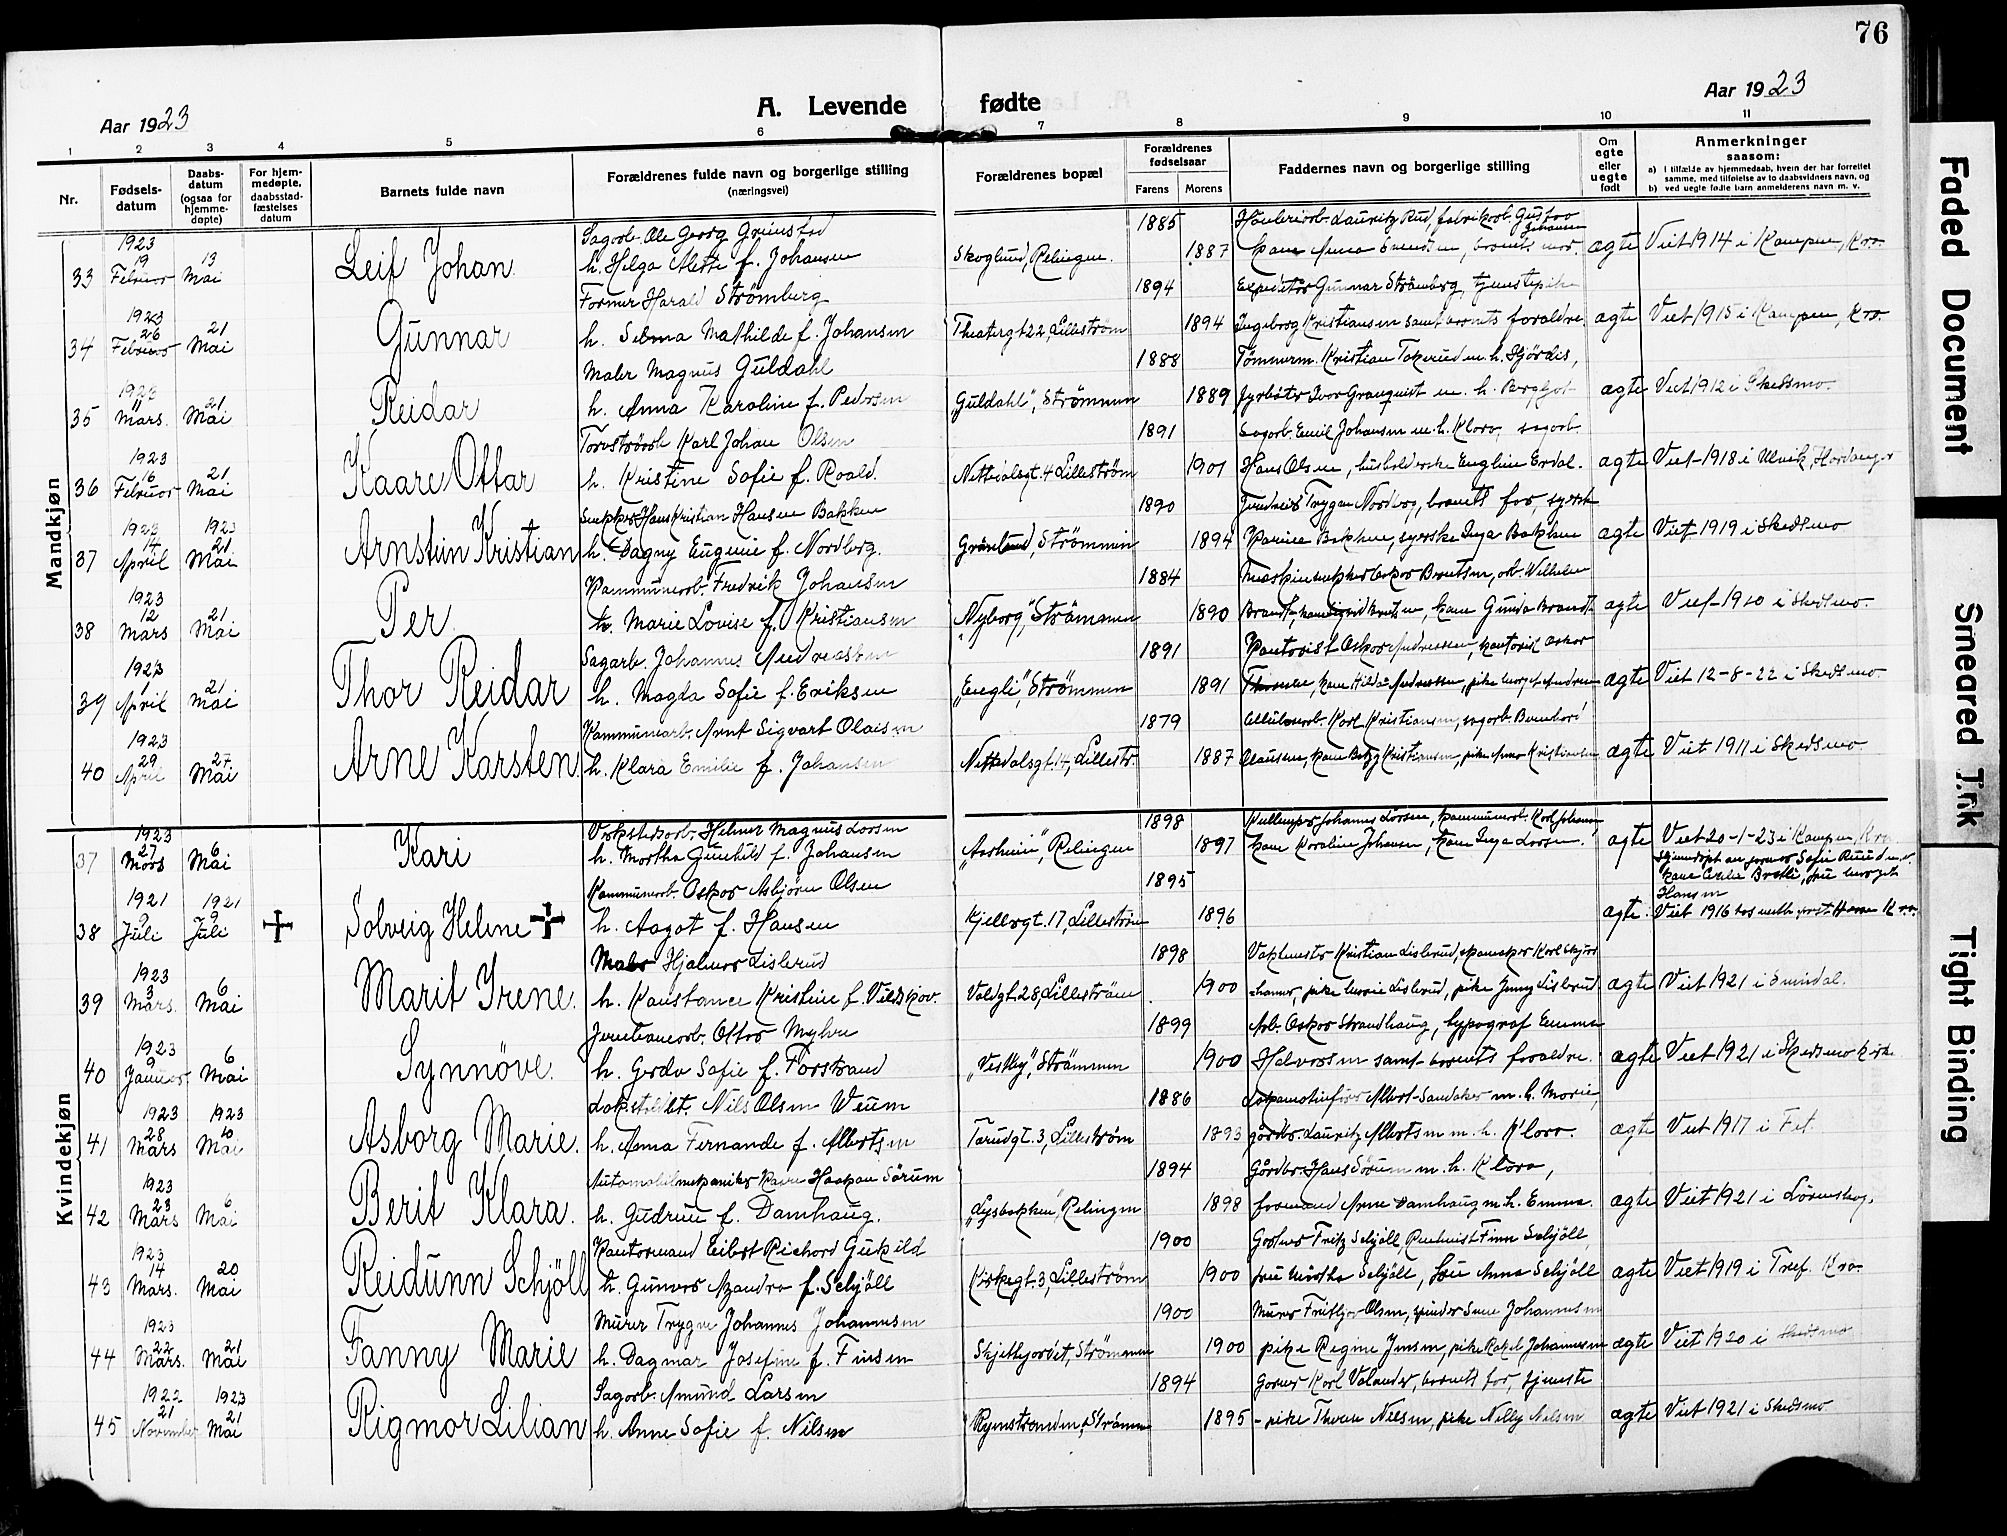 76
Aar 1923
A. Levende fødte
Aar 1923
1 2 3 4 5 6 7 8 9 10 11
Nr.
Fødsels-
datum
Daabs-
datum
(ogsaa for
hjemme-
døpte)
For hjem-
medøpte,
daabsstad-
fæstelses
datum
Barnets fulde navn
Forældrenes fulde navn og borgerlige stilling
(næringsvei)
Forældrenes bopæl
Forældrenes
fødselsaar
Farens Morens
Faddernes navn og borgerlige stilling
Om
egte
eller
uegte
født
Anmerkninger
saasom:
a) I tilfælde av hjemmedaab, hvem der har forrettet
samme, med tilføielse av to daabsvidners navn, og
b) ved uegte fødte barn anmelderens navn m. v.
Mandkjøn
1923 Sagarb. Ole Georg Grinstad 1885
33 19 Februar 13 Mai Leif Johan h. Helga Alette f. Johansen Skoglund, Relingen. 1887 ægte Viet 1914 i Kampen, Kra.
1923 Former Harald Strömberg 1894 Expeditør Gunnar Strömberg, tjenestepike
34 26 Februar 21 Mai Gunnar h. Selma Mathilde f. Johansen Theatergt. 22, Lilleström 1894 Ingeborg Kristiansen samt barnets forældre. ægte Viet 1915 i Kampen, Kra.
1923 Maler Magnus Guldahl 1888 Tömmerm. Kristian Tokerud m. h. Hjördis,
35 11 Mars. 21 Mai Reidar h. Anna Karoline f. Pedersen "Guldahl", Strömmen 1889 Fyrböter Ivar Granquist m. h. Borghjot ægte Viet 1912 i Skedsmo.
1923 Karl Johan Olsen 1891 Sagarb. Emil Johansen m. h. Klara, sagarb.
36 16 Februar 21 Mai Kaare Ottar h. Kristine Sofie f. Roald. Nittedalsgt. 4 Lilleström 1901 Hans Olsen, husholderske Engline Erdal. ægte Viet 1918 i Ulvik, Hardanger
1923 1923 Snekker Hans Kristian Hansen Bakken 1890 Trygve Nordberg, barnets far, syerske
37 14 April 21 Mai Arnstein Kristian h. Dagny Eugenie f. Nordberg. Grönland, Strömmen 1894 Bakken, syerske Inga Bakken ægte Viet 1919 i Skedsmo
1923 Kommunearb. Fredrik Johansen 1884 Wilhelm
38 12 Mars 21 Mai Per h. Marie Lovise f. Kristiansen "Nyborg", Strömmen 1890 kone Gunda Brandt ægte Viet 1910 i Skedsmo.
1923 Sagarb. Johannes Andreassen 1891 Kontorist Oskar Andreassen, kontorist Oskar
39 1 April 21 Mai Thor Reidar h. Magda Sofie f. Eriksen "Engli", Strömmen 1891 kone Hilda Andreassen, pike ægte Viet 12-8-22 i Skedsmo.
1923 Kommunearb. Arnt Sigvart Olaisen 1879 Karl Kristiansen, sagarb. Bernhard
40 29 April 27 Mai Arne Karsten h. Klara Emilie f. Johansen Nittedalsgt. 14, Lillestr. 1887 Clausen, kone Kristiansen, pike Anna Kristiansen ægte Viet 1911 i Skedsmo
Kvindekjøn
1923 Verkstedsarb. Helmer Magnus Larsen 1898 Johannes Larsen, kommunearb. Karl Johansen,
37 27 Mars 6 Mai Kari h. Martha Gunhild f. Johansen "Aasheim", Relingen 1897 kone Karoline Johansen, kone Inga Larsen. ægte Viet 20-1-23 i Kampen, Kra
1921 1921 Kommunearb. Oskar Asbjörn Olsen 1895 Hjemmedöpt av jormor Sofie Ruud m. v.
38 9 Juli 9 Juli Solveig Helene h. Aagot f. Hansen Kjellergt. 17, Lilleström 1896 ægte. Hansen Viet 1916 hos
1923 Maler Hjalmar Lislerud 1898 Vaktmester Kristian Lislerud,
39 3 Mars. 6 Mai Marit Irene. h. Konstance Kristine f. Vildskov. Voldgt. 28, Lilleström 1900 pike Lislerud, pike Jenny Lislerud ægte Viet 1921 i Enindal.
1923 Jernbanearb. Ottar Myhre 1899 Arb. Oskar Strandhaug, typograf Emma
40 9 Januar 6 Mai Synnöve. h. Gerda Sofie f. Forstrand "Vestby", Strömmen 1900 Halvorsen samt barnets forældre. ægte Viet 1921 i Skedsmo Kirke
1923 1923 Nils Olsen Weum 1886 Lokomotivförer Albert Sandaker m. h. Marie,
41 28 Mars 10 Mai Asborg Marie. h. Anna Fernande f. Albertsen Torudgt. 3, Lilleström 1893 gårdbr. Lauritz Albertsen m. h. Klara. ægte Viet 1917 i Fet.
1923 Automobilmekaniker Haakon Sörum 1894 Gårdbr. Hans Sörum m. h. Klara,
42 23 Mars 6 Mai Berit Klara. h. Gudrun f. Damhaug. "Lysbakken", Relingen 1898 formand Arne Damhaug m. h. Emma. ægte Viet 1921 i Lörenskog.
1923 Kontormand Eilert Richard Gukild 1900 Gartner Fritz Schjöll, Finn Schjöll,
43 14 Mars. 20 Mai Reidunn Schjöll h. Gunvor Azandra f. Schjöll Kirkegt. 3, Lilleström 1900 fru Martha Schjöll, fru Anna Schjöll ægte Viet 1919 i Tref. Kra.
1923 Murer Trygve Johannes Johannesen 1900 Murer Fritjof Olsen, Johannesen
44 22 Mars. 21 Mai Fanny Marie h. Dagmar Josefine f. Finsen Skjettejordet, Strömmen 1900 pike Regine Jensen, pike Rakel Johannesen ægte Viet 1920 i Skedsmo
1922 1923 Sagarb. Amund Larsen 1894 Garver Karl Valander, barnets far, tjeneste
45 21 November 21 Mai Rigmor Lilian h. Anne Sofie f. Nilsen Rymstranden, Strömmen 1895 - pike Thora Nilsen, pike Nelly Nilsen ægte Viet 1921 i Skedsmo
Faded Document
Smeared Ink
Tight Binding